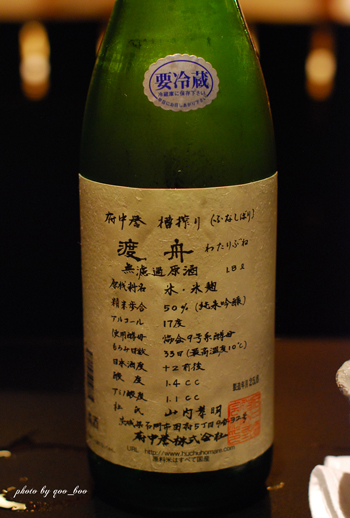 要冷蔵
府中誉 槽搾り (ふなしぼり)
渡舟 わたりぶね
無濾過原酒 1.8ℓ
原材料名 米・米麹
精米歩合 50% (純米吟醸)
アルコール 17度
使用酵母 協会9号系酵母
もろみ日数 33日 (最高温度10℃)
日本酒度 +2前後
酸度 1.4cc
アミノ酸度 1.1cc
杜氏 山内孝明
府中誉株式会社
URL http://www.huchuhomare.com
原料米はすべて国産
photo by qoo_boo